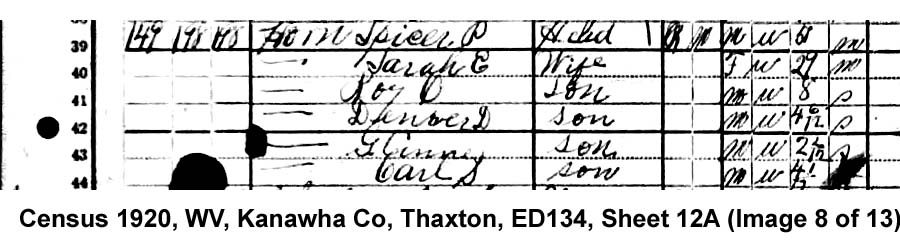 39 149 198 198 Spicer P Head R M M W M
40 Sarah E Wife F W 29 M
41 Roy O Son M W 8 S
42 Denver D Son M W 4 6/12 S
43 Son M W 2 S
44 Carl S Son M W
Census 1920, WV, Kanawha Co, Thaxton, ED134, Sheet 12A (Image 8 of 13)